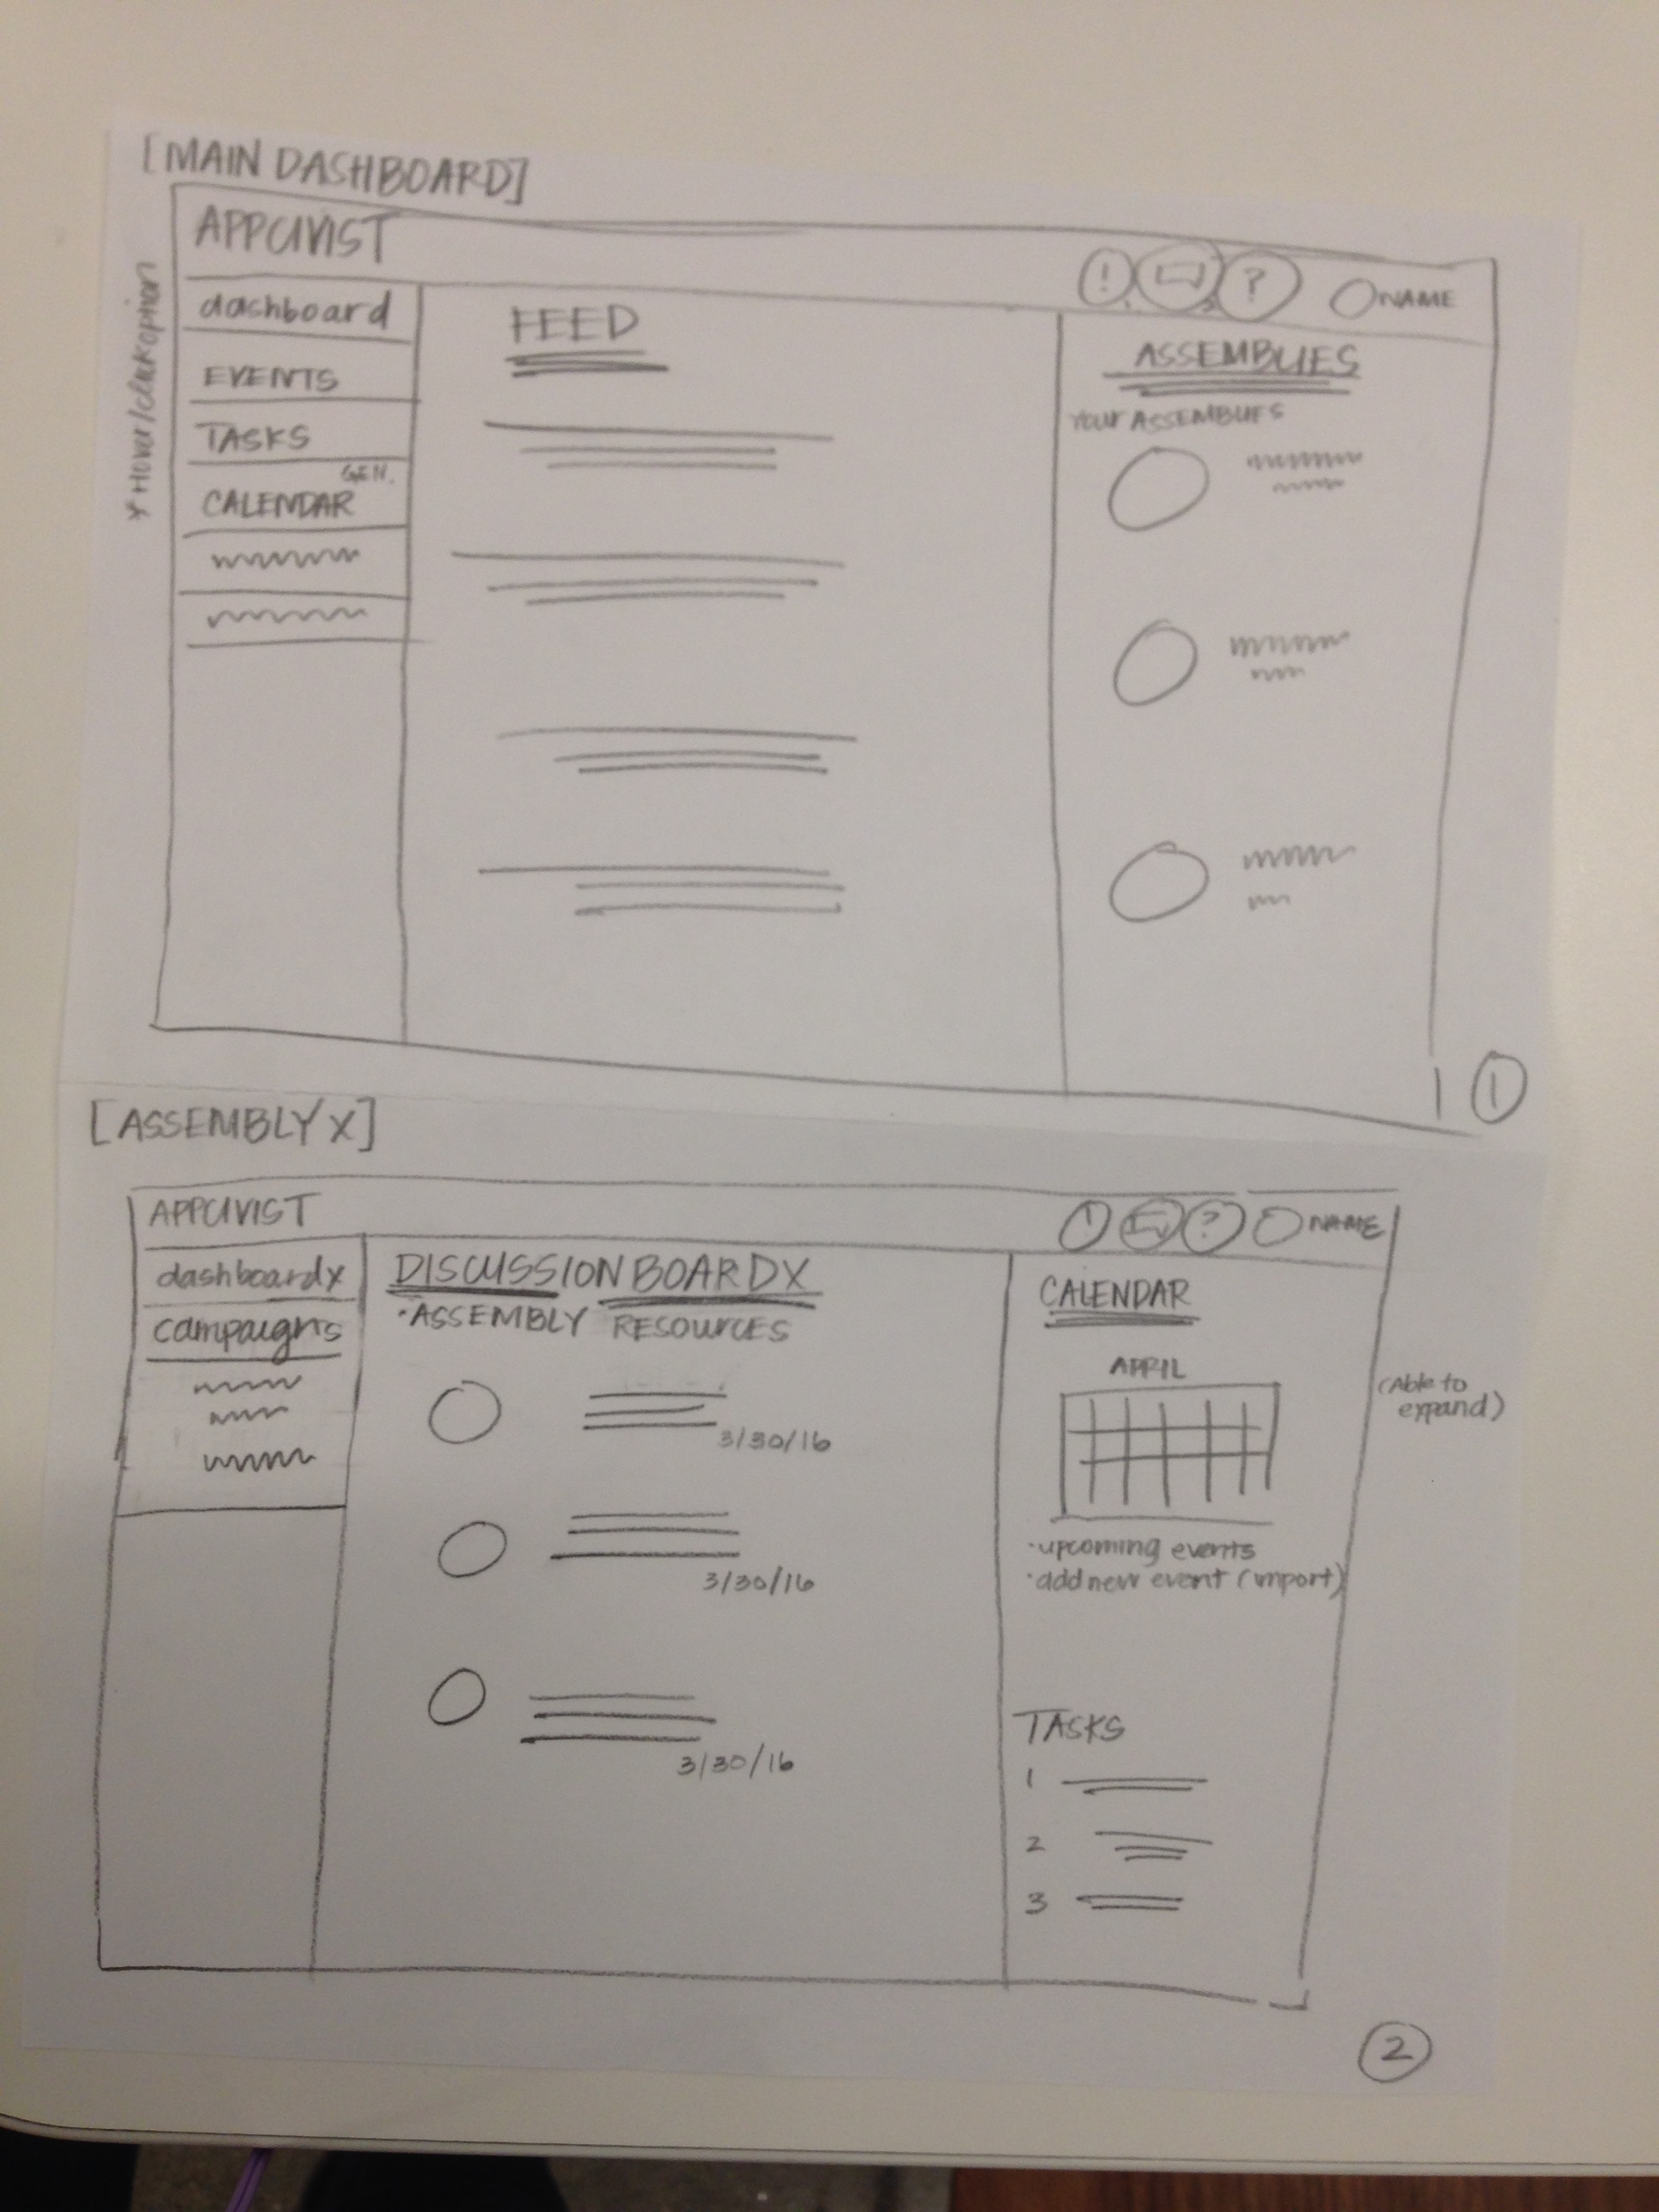 [MAIN DASHBOARD]
APPCIVIST
! ? NAME
* Hover/click option
dashboard
EVENTS
TASKS
GEN.
CALENDAR
FEED
ASSEMBLIES
YOUR ASSEMBLIES
1
[ASSEMBLY X]
APPCIVIST
! ? NAME
dashboard x
campaigns
DISCUSSION BOARD X
·ASSEMBLY RESOURCES
3/30/16
3/30/16
3/30/16
CALENDAR
APRIL
(Able to
expand)
·upcoming events
·add new event (import)
TASKS
1
2
3
2